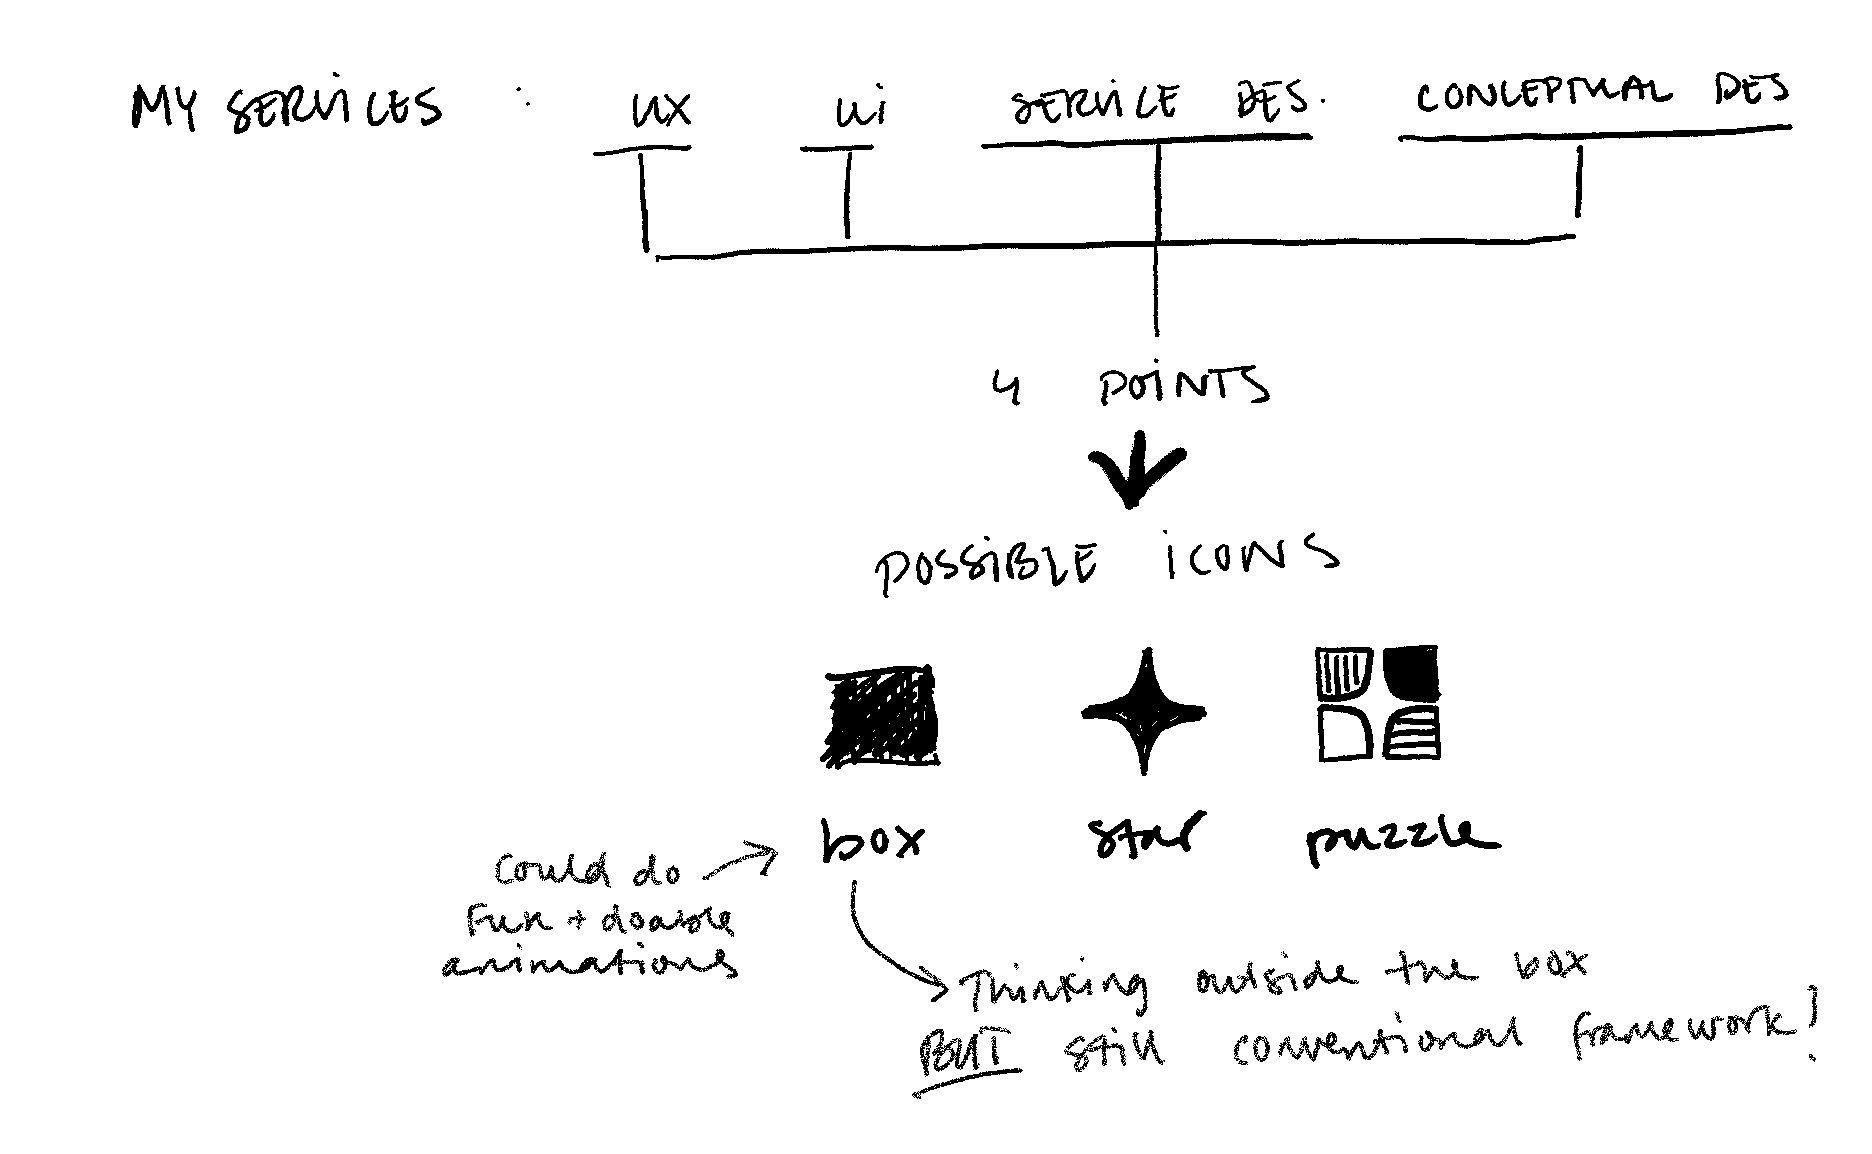 MY SERVICES : UX Ui SERVICE DES. CONCEPTUAL DES
4 POiNTS
POSSiBLE iCONS
box star puzzle
Could do
Fun + doable
animations
Thinking outside the box
BUT still conventional framework!